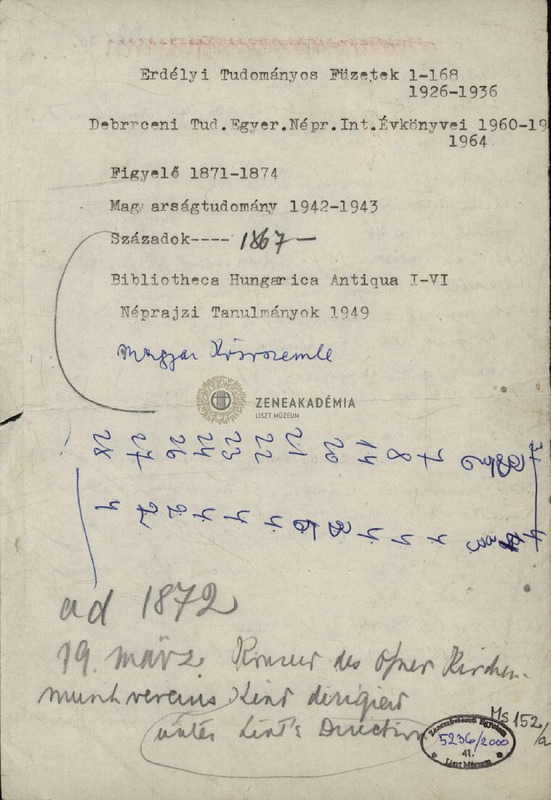 Erdélyi Tudományos Füzetek 1-168
1926-1936
Debrrceni Tud.Egyer.Népr.Int.Évkönyvei 1960-19
1964
Figyelő 1871-1874
Magyarságtudomány 1942-1943
Századok---- 1867-
Bibliotheca Hungarica Antiqua I-VI
Néprajzi Tanulmányok 1949
Magyar
ZENEAKADÉMIA
LISZT MÚZEUM
28 27 26 24 23 22 21 20 14 8 7
ad 1872
19. März. Konzert des Ofner Kirchen-
musikvereins Liszt dirigiert
unter Liszt's Direction
Ms 152/a
Zeneművészeti Egyetem
5236/2000
41.
Liszt Múzeum